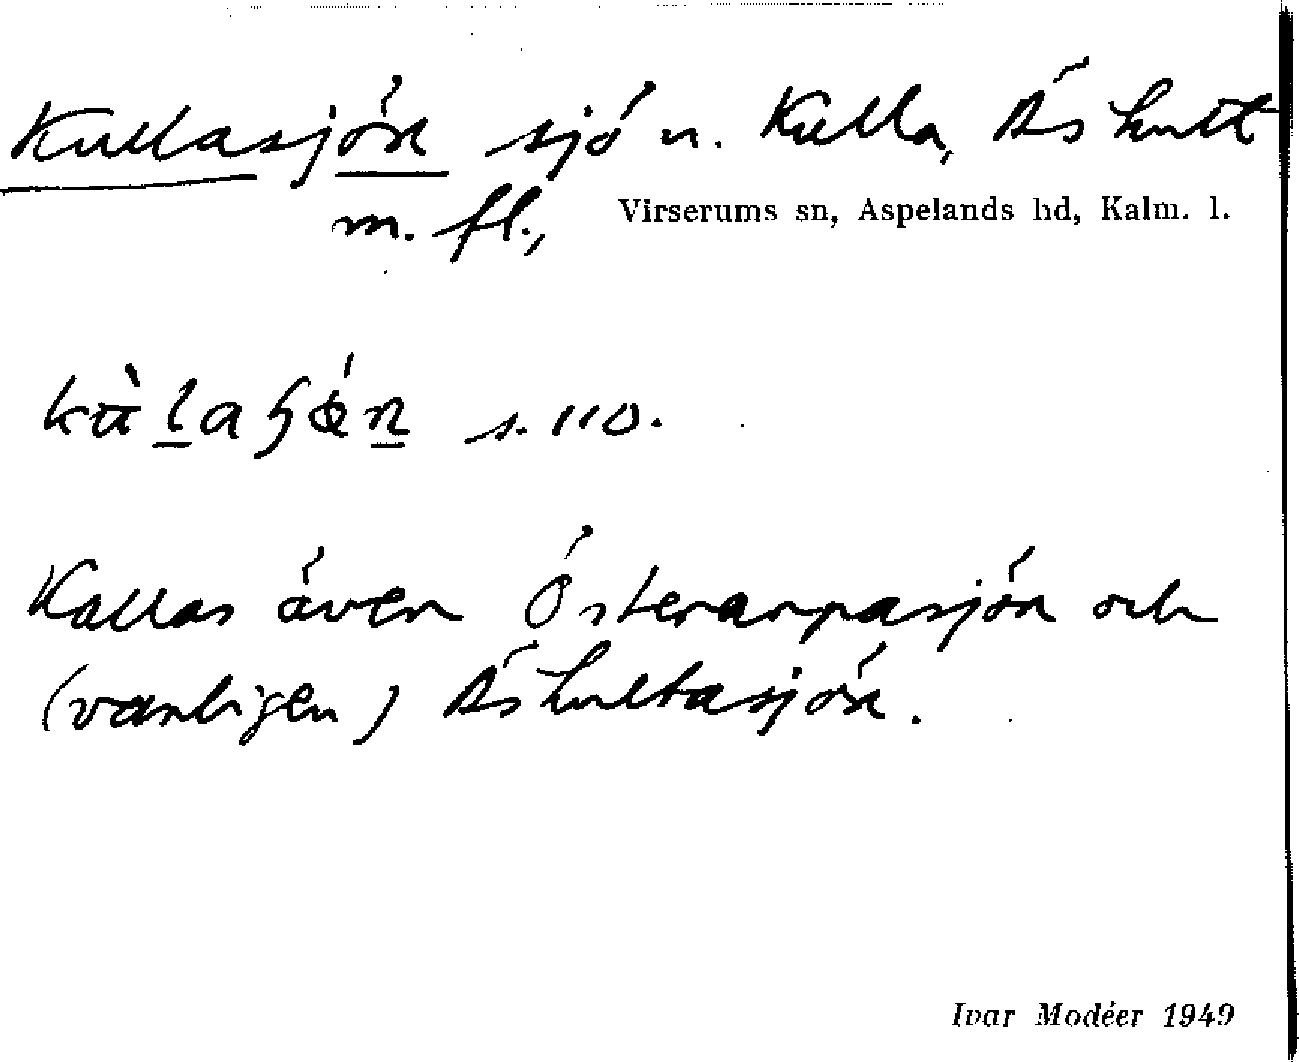 Kullasjön sjö n. Kulla, Åshult
m. fl., Virserums sn, Aspelands hd, Kalm. l.
s. 110.
Kallas även Österarpasjön och
(vanligen) Åshultasjön.
Ivar Modéer 1949